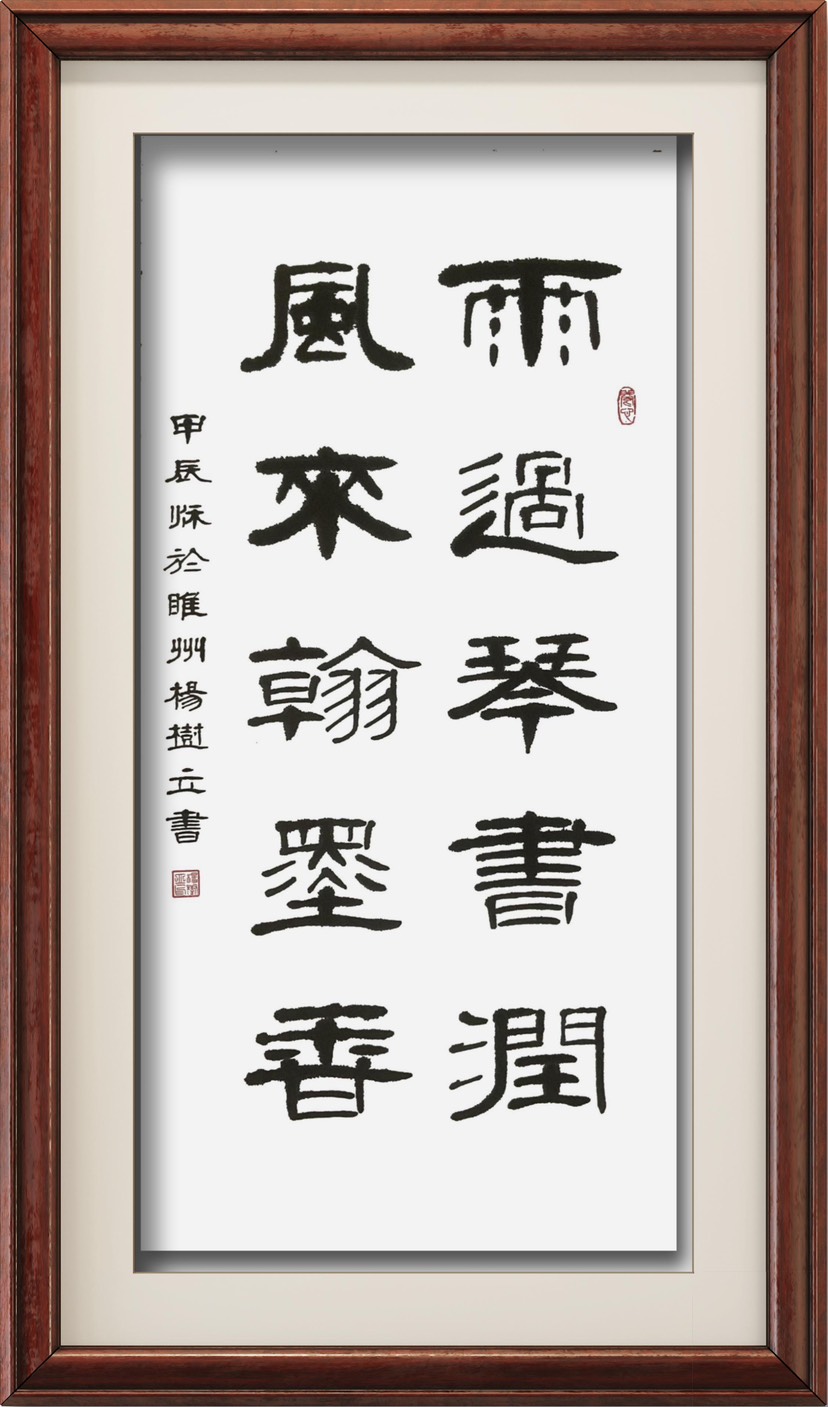 雨過琴書潤
風來翰墨香
甲辰秌於睢州楊樹立書